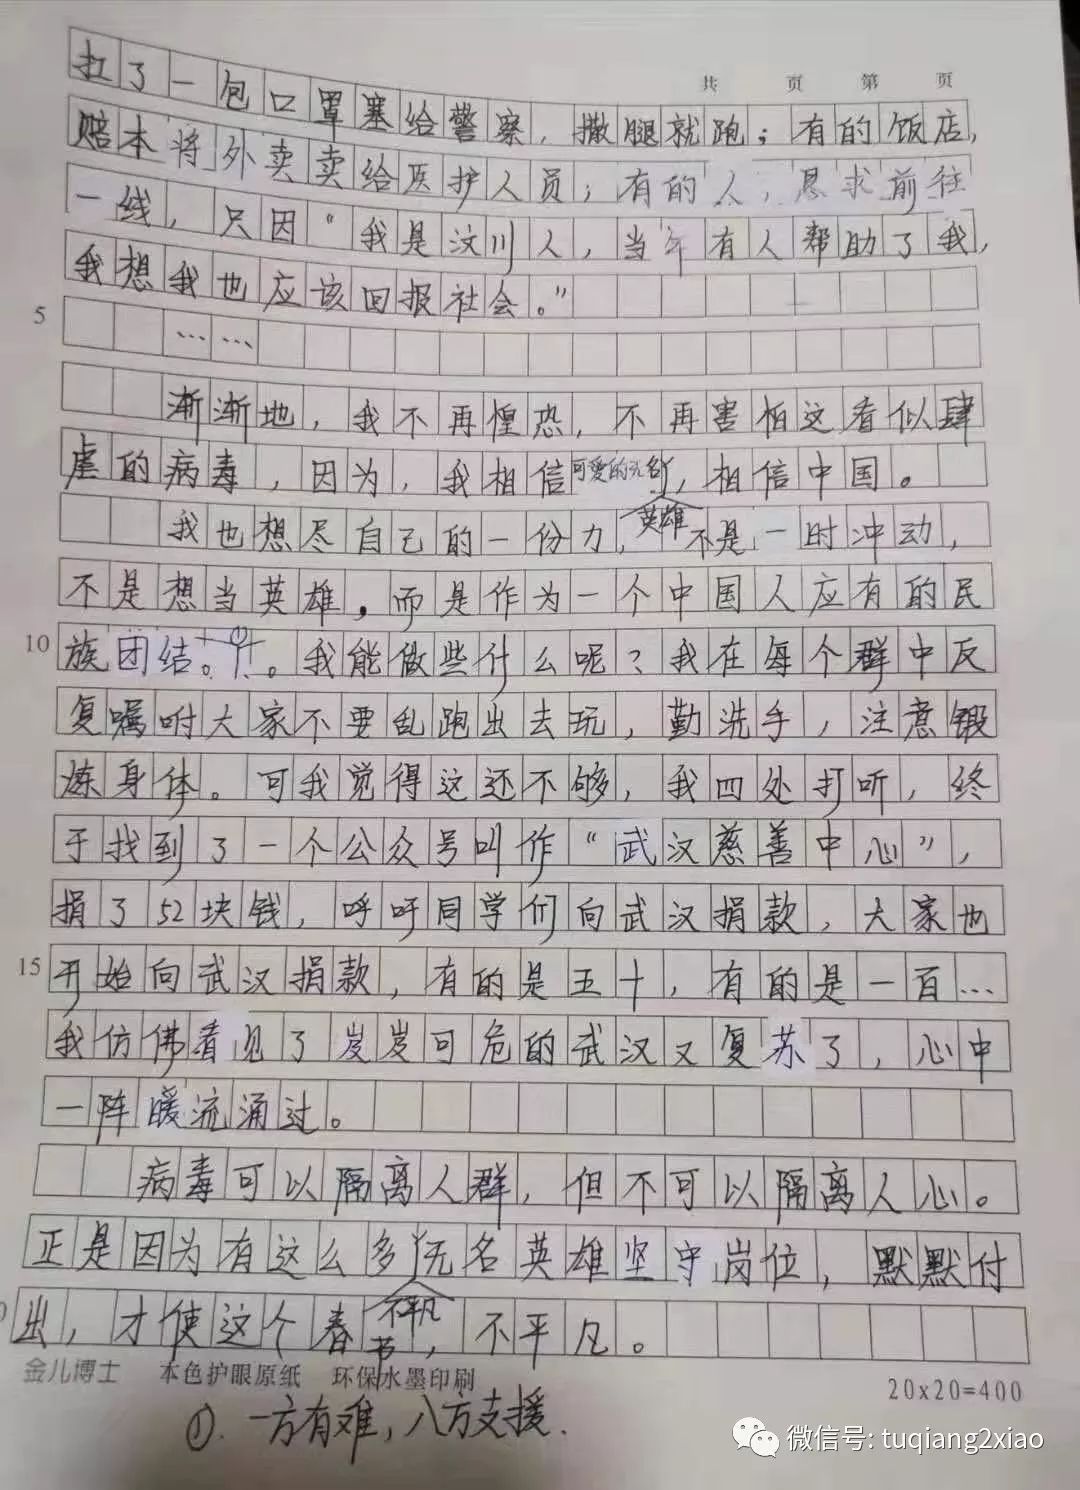 共 页 第 页
扛了一包口罩塞给警察，撒腿就跑；有的饭店，
赔本将外卖卖给医护人员；有的人，恳求前往
一线，只因“我是汶川人，当年有人帮助了我，
我想我也应该回报社会。”
5
……
渐渐地，我不再惶恐，不再害怕这看似肆
虐的病毒，因为，我相信可爱的无名英雄，相信中国。
我也想尽自己的一份力，不是一时冲动，
不是想当英雄，而是作为一个中国人应有的民
10
族团结。①。我能做些什么呢？我在每个群中反
复嘱咐大家不要乱跑出去玩，勤洗手，注意锻
炼身体。可我觉得这还不够，我四处打听，终
于找到了一个公众号叫作“武汉慈善中心”，
捐了52块钱，呼吁同学们向武汉捐款，大家也
15
开始向武汉捐款，有的是五十，有的是一百…
我仿佛看见了岌岌可危的武汉又复苏了，心中
一阵暖流涌过。
病毒可以隔离人群，但不可以隔离人心。
正是因为有这么多不平凡无名英雄坚守岗位，默默付
出，才使这个春节，不平凡。
金儿博士 本色护眼原纸 环保水墨印刷
20x20=400
①.一方有难，八方支援.
微信号: tuqiang2xiao